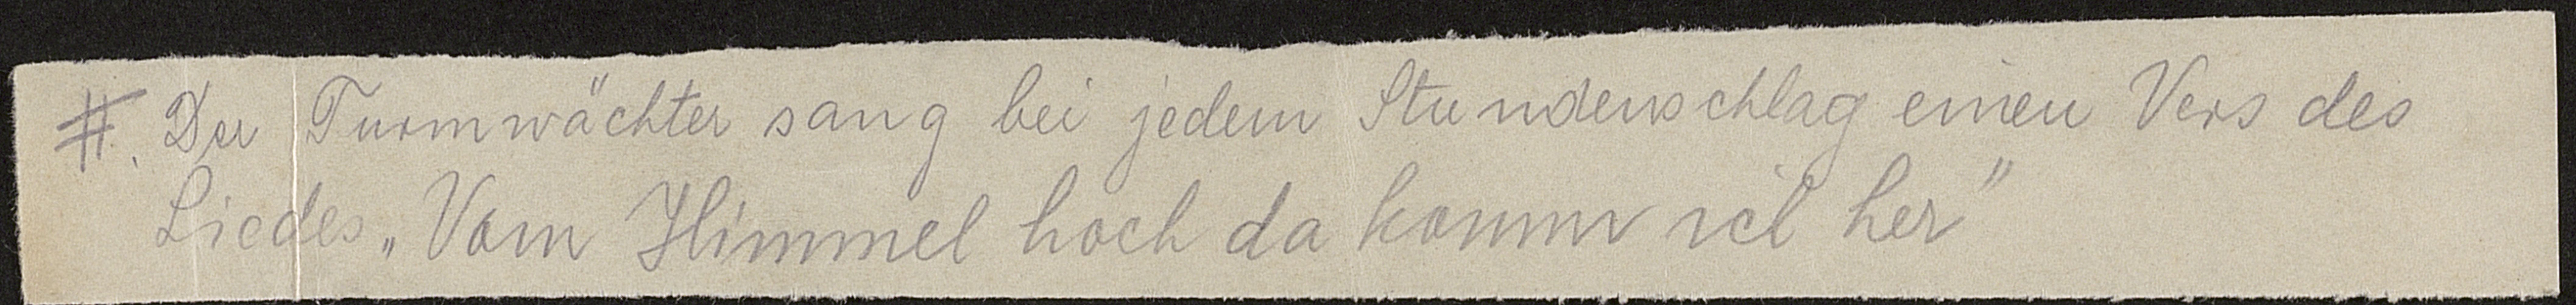 #. Der Turmwächter sang bei jedem Stundenschlag einen Vers des
Liedes „Vom Himmel hoch da komm ich her"